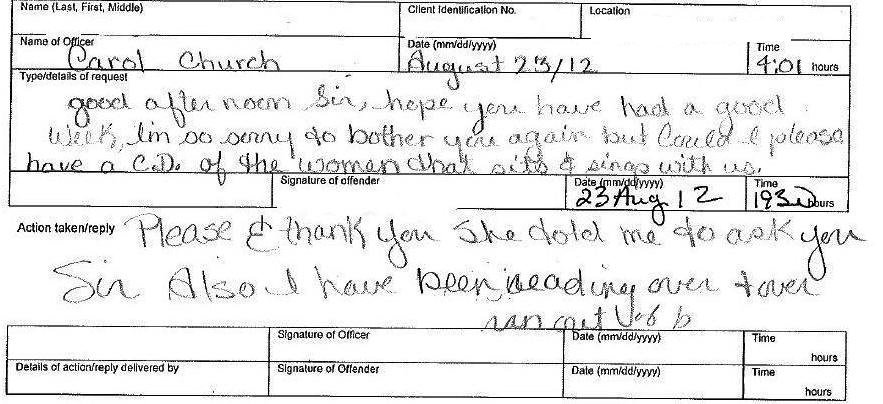 Name (Last, First, Middle) Client Identification No. Location
Name of Officer Date (mm/dd/yyyy) Time
Carol Church August 23/12 4:01 hours
Type/details of request
good afternoon Sir, hope you have had a good
week, I'm so sorry to bother you again but Could I please
have a C.D. of the women that sits & sings with us.
Signature of offender Date (mm/dd/yyyy) Time
23 Aug 12 1930 hours
Action taken/reply Please & thank you She told me to ask you
Sir Also I have been reading over + over
ran out
Signature of Officer Date (mm/dd/yyyy) Time
hours
Details of action/reply delivered by Signature of Offender Date (mm/dd/yyyy) Time
hours